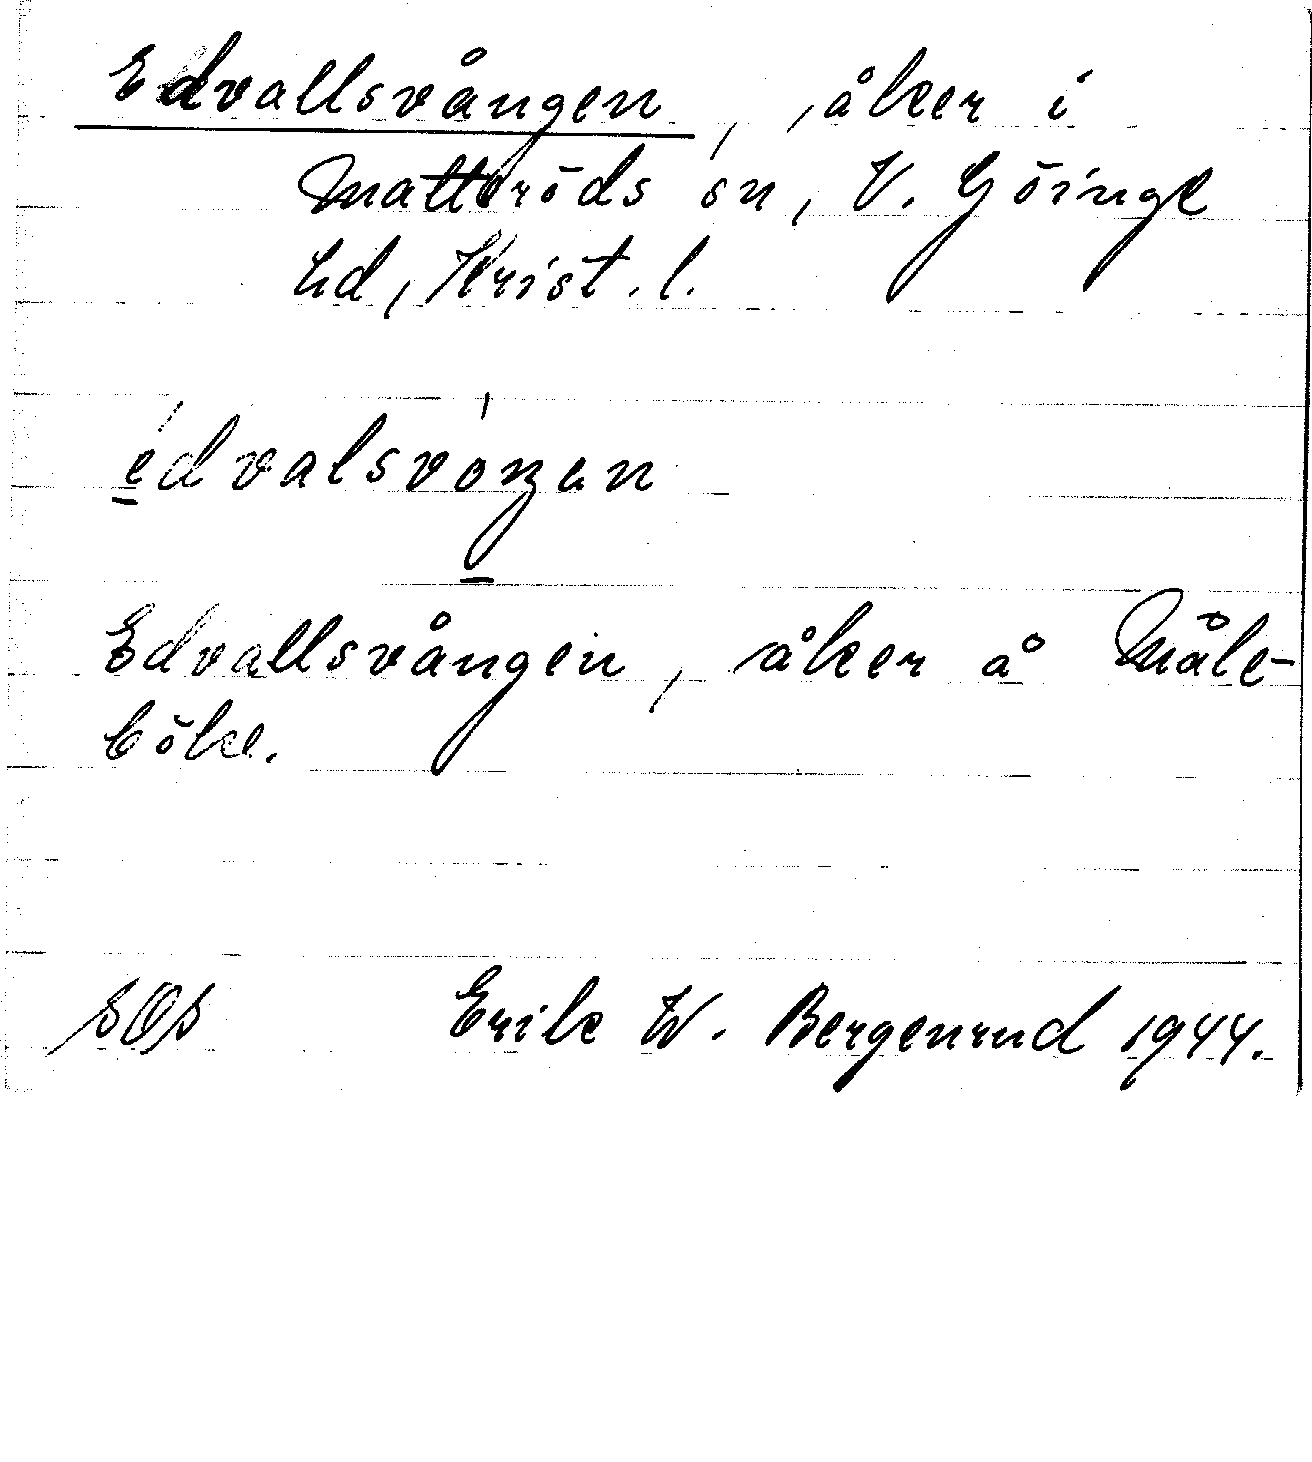 Edvallsvången, åker i
Matteröds sn, V. Göinge
hd, Krist. l.
édvalsvoŋən
Edvallsvången, åker å Måle-
böke.
SOS Erik W. Bergenrud 1944.